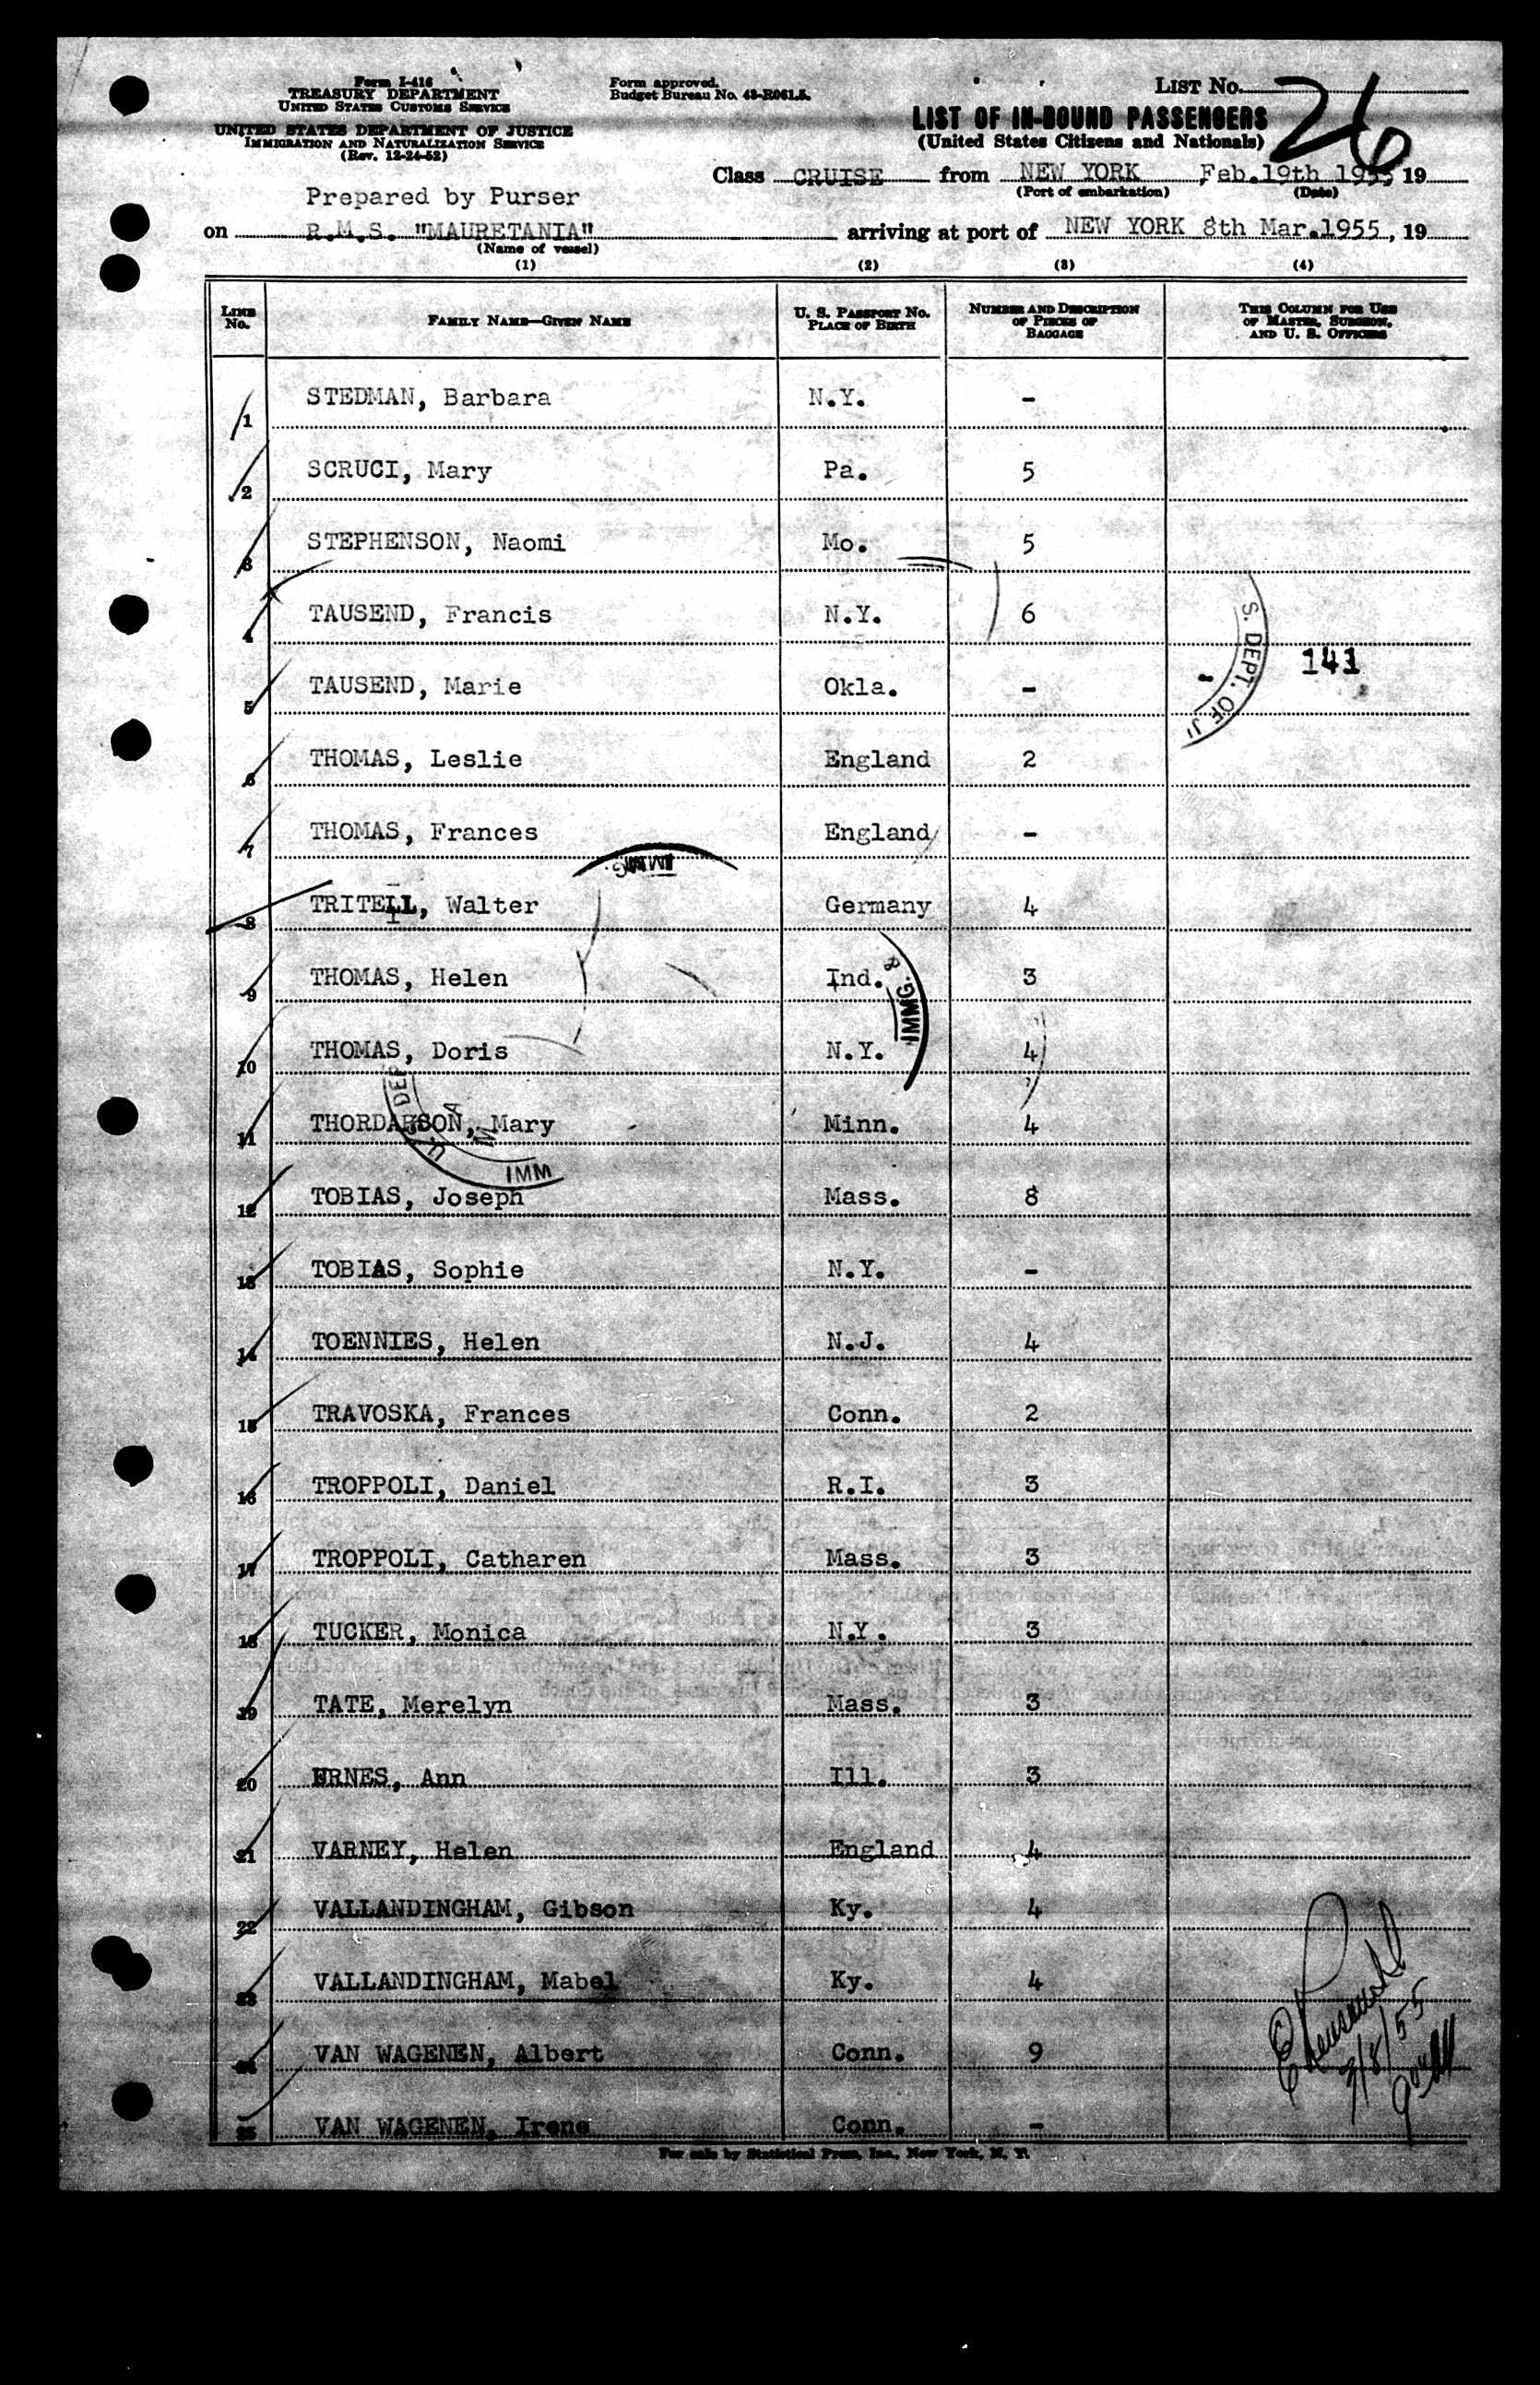 Form I-416
TREASURY DEPARTMENT
UNITED STATES CUSTOMS SERVICE
UNITED STATES DEPARTMENT OF JUSTICE
IMMIGRATION AND NATURALIZATION SERVICE
(Rev. 12-24-52)
Form approved.
Budget Bureau No. 43-R061.5.
LIST No. 26
LIST OF IN-BOUND PASSENGERS
(United States Citizens and Nationals)
Class CRUISE from NEW YORK Feb.19th 1955, 19
(Port of embarkation) (Date)
Prepared by Purser
on R.M.S. "MAURETANIA" arriving at port of NEW YORK 8th Mar.1955, 19
(Name of vessel)
(1) (2) (3) (4)
LINE No. FAMILY NAME—GIVEN NAME U. S. PASSPORT No. PLACE OF BIRTH NUMBER AND DESCRIPTION OF PIECES OF BAGGAGE THIS COLUMN FOR USE OF MASTER, SURGEON, AND U. S. OFFICERS
1 STEDMAN, Barbara N.Y. -
2 SCRUCI, Mary Pa. 5
3 STEPHENSON, Naomi Mo. 5
4 TAUSEND, Francis N.Y. 6
S. DEPT. OF J
141
5 TAUSEND, Marie Okla. -
6 THOMAS, Leslie England 2
7 THOMAS, Frances England -
IMMIG.
8 TRITELL, Walter Germany 4
9 THOMAS, Helen Ind. 3
IMMG. &
10 THOMAS, Doris N.Y. 4
11 THORDARSON, Mary Minn. 4
U. S. DEP
IMM
12 TOBIAS, Joseph Mass. 8
13 TOBIAS, Sophie N.Y. -
14 TOENNIES, Helen N.J. 4
15 TRAVOSKA, Frances Conn. 2
16 TROPPOLI, Daniel R.I. 3
17 TROPPOLI, Catharen Mass. 3
18 TUCKER, Monica N.Y. 3
19 TATE, Merelyn Mass. 3
20 URNES, Ann Ill. 3
21 VARNEY, Helen England 4
22 VALLANDINGHAM, Gibson Ky. 4
23 VALLANDINGHAM, Mabel Ky. 4
24 VAN WAGENEN, Albert Conn. 9
25 VAN WAGENEN, Irene Conn. -
3/8/55
For sale by Statistical Press, Inc., New York, N. Y.